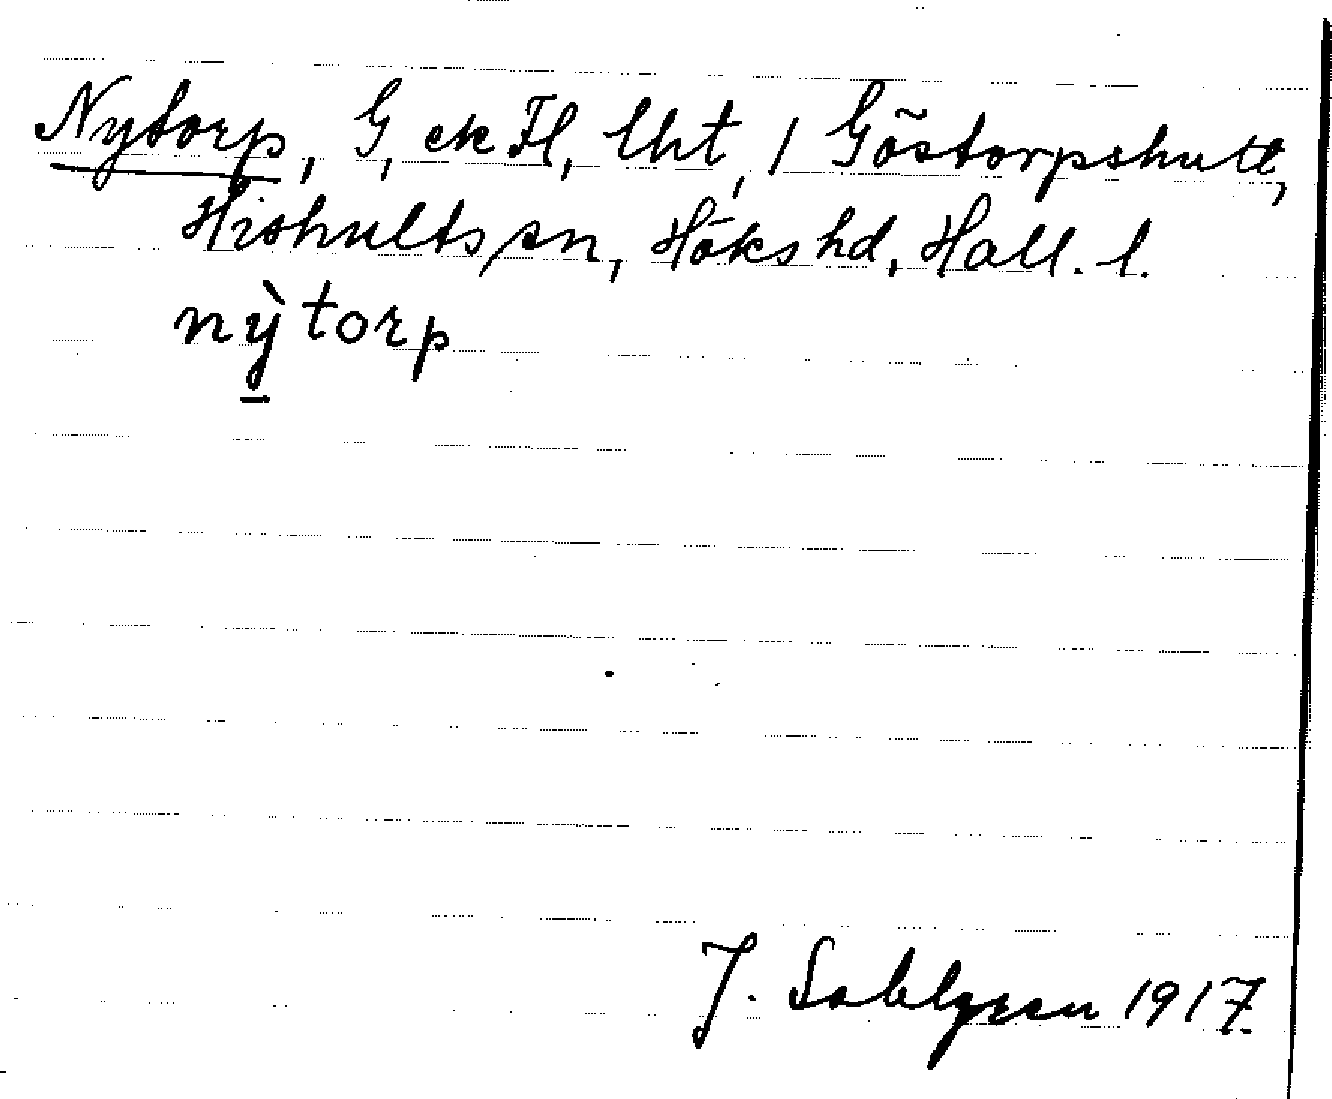 Nytorp, G, ek Fl, lht, / Göstorpshult,
Hishults sn, Höks hd, Hall. l.
nỳtorp
J. Sahlgren 1917.